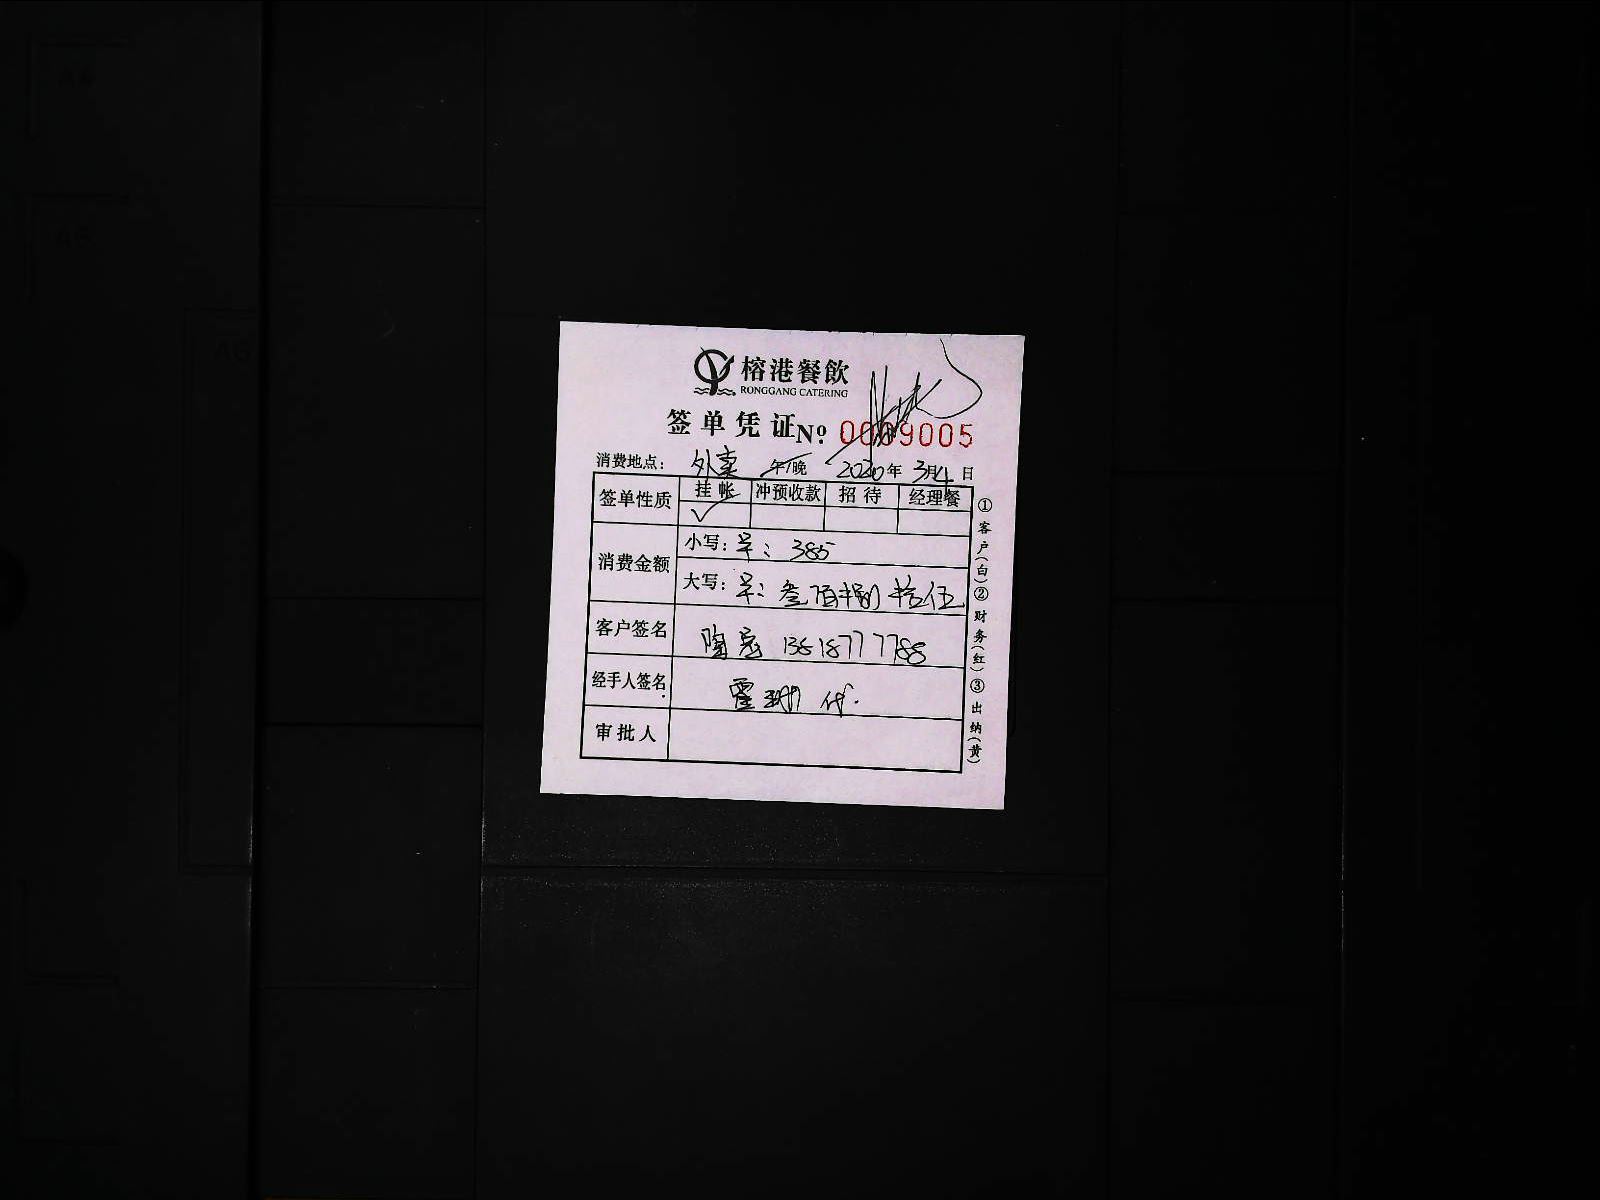 榕港餐飲
RONGGANG CATERING
签单凭证 Nº 0009005
消费地点: 外卖 午/晚 2020年3月4日
签单性质 挂帐 冲预收款 招待 经理餐
✓
消费金额
小写: 早: 385
大写: 早: 叁佰捌拾伍
客户签名 陶 13618777788
经手人签名 霍 代.
审批人
①客户(白)②财务(红)③出纳(黄)
A6